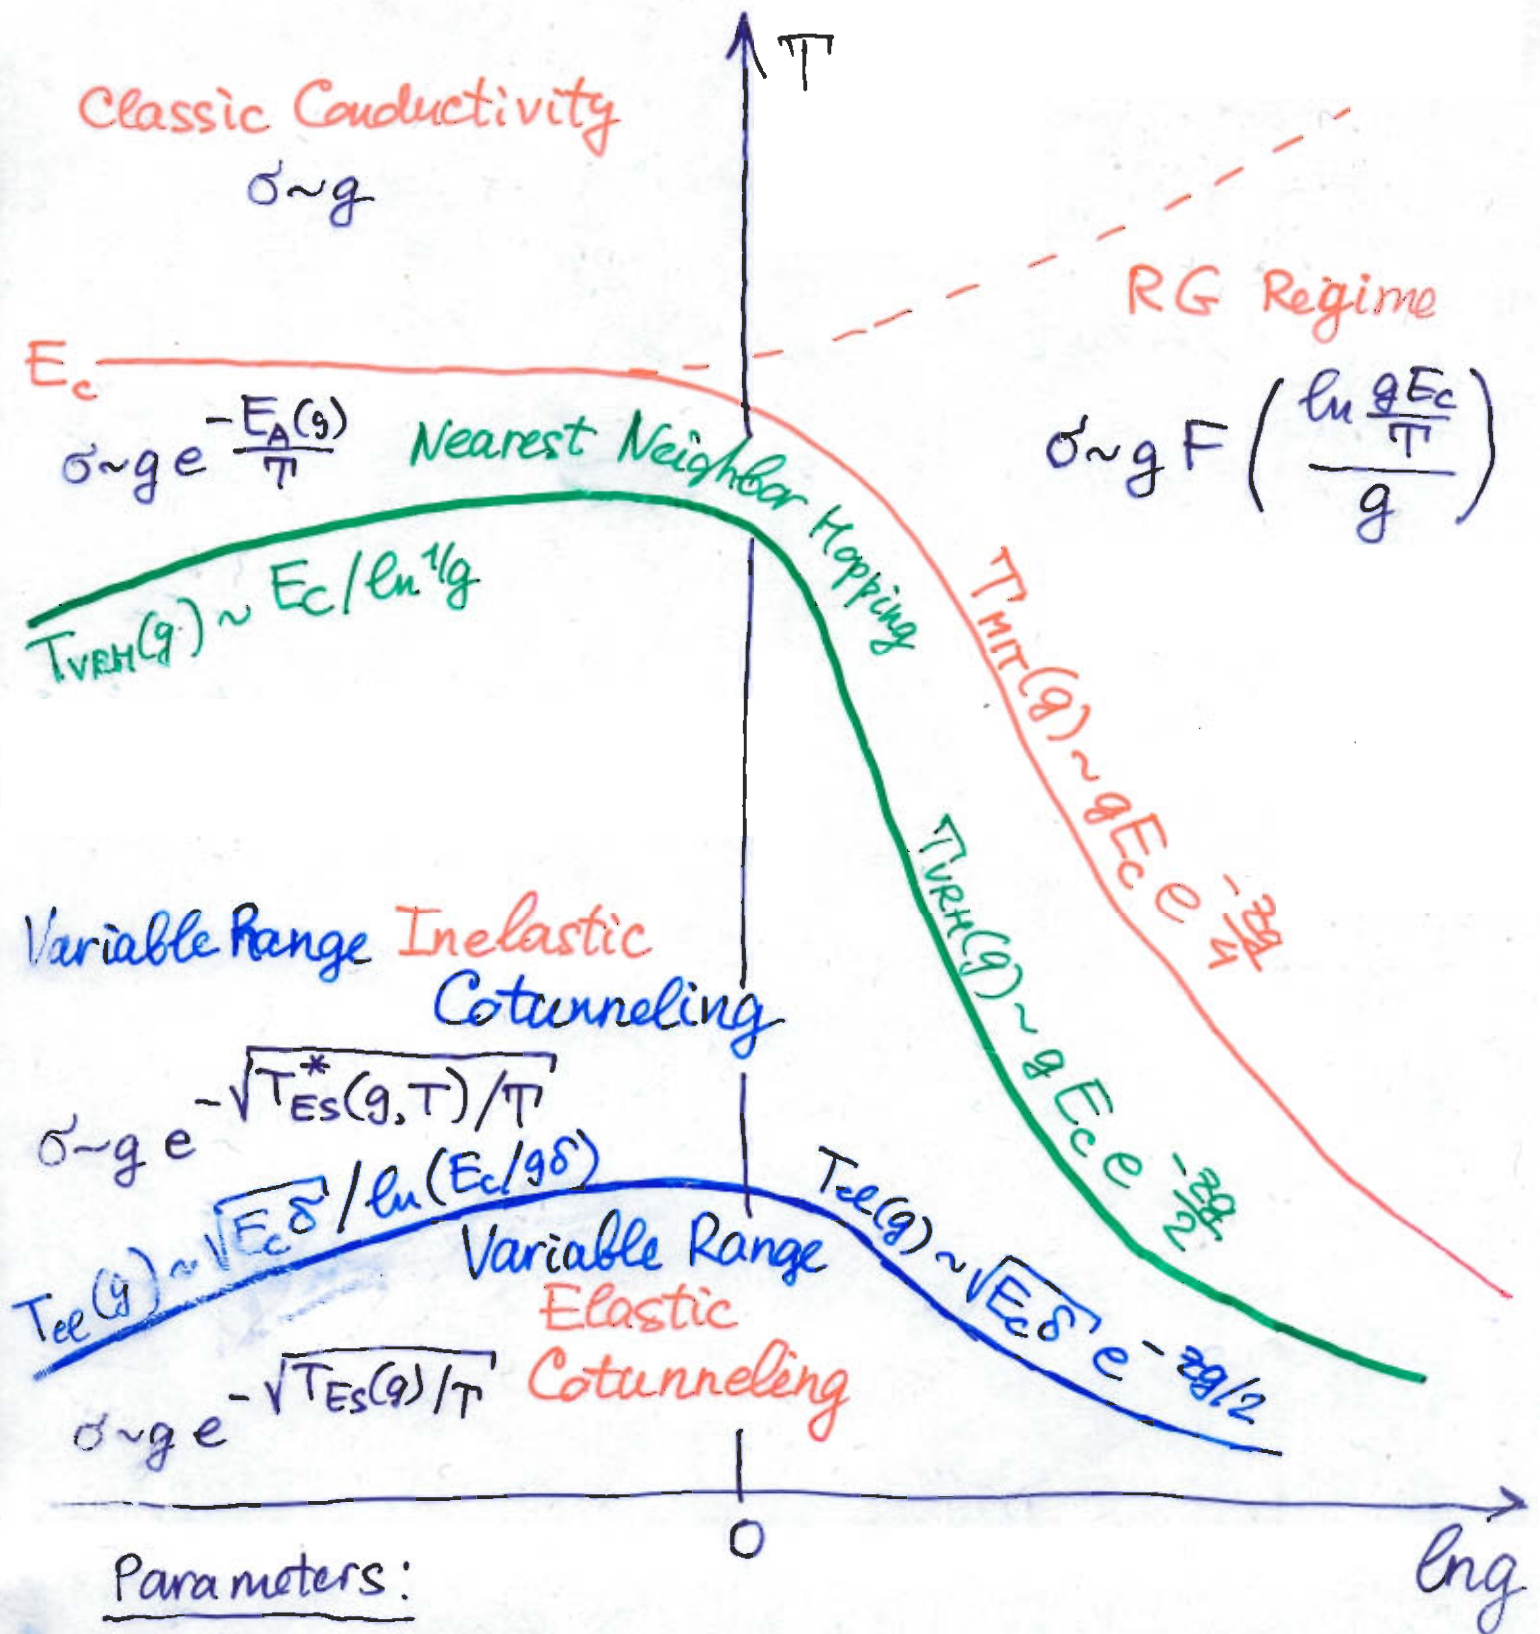 T
Classic Conductivity
σ~g
RG Regime
σ~g F ( ln gEc/T / g )
Ec
σ~g e^{-E_A(g)/T}
Nearest Neighbor Hopping
T_VRH(g) ~ Ec/ln 1/g
T_MIT(g) ~ gEc e^{-zg/4}
T_VRH(g) ~ gEc e^{-zg/2}
Variable Range Inelastic
Cotunneling
σ~g e^{-√(T*_ES(g,T)/T)}
T_el(g) ~ √(Ecδ) / ln(Ec/gδ)
T_el(g) ~ √(Ecδ) e^{-zg/2}
Variable Range
Elastic
Cotunneling
σ~g e^{-√(T_ES(g)/T)}
0
lng
Parameters: